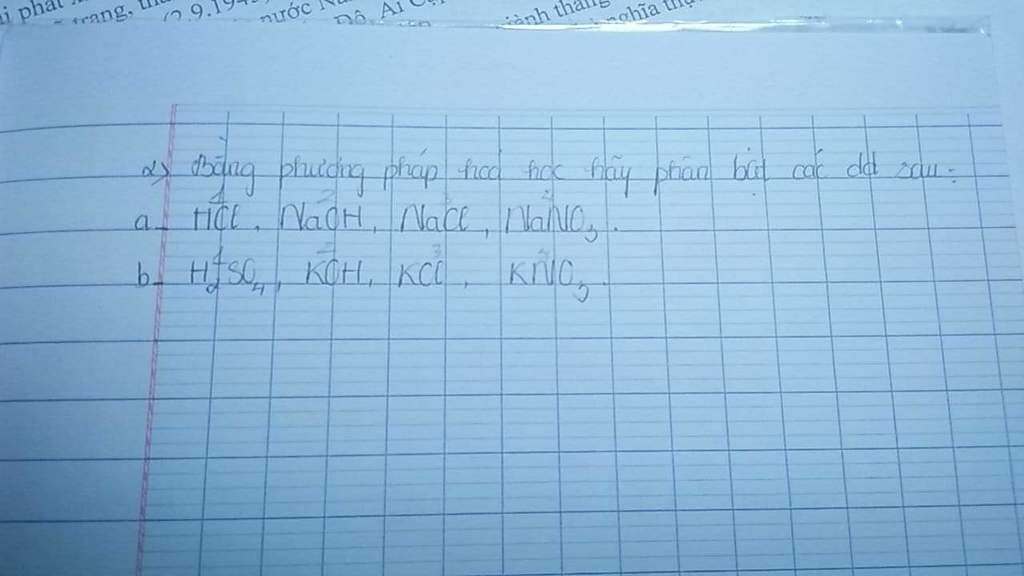 i phát
trang, 2.9.194 nước Đô, Ai ành thắng nghĩa
2) Bằng phương pháp hoá học hãy phân biệt các dd sau:
a. HCl, NaOH, NaCl, NaNO3.
b. H2SO4, KOH, KCl, KNO3.